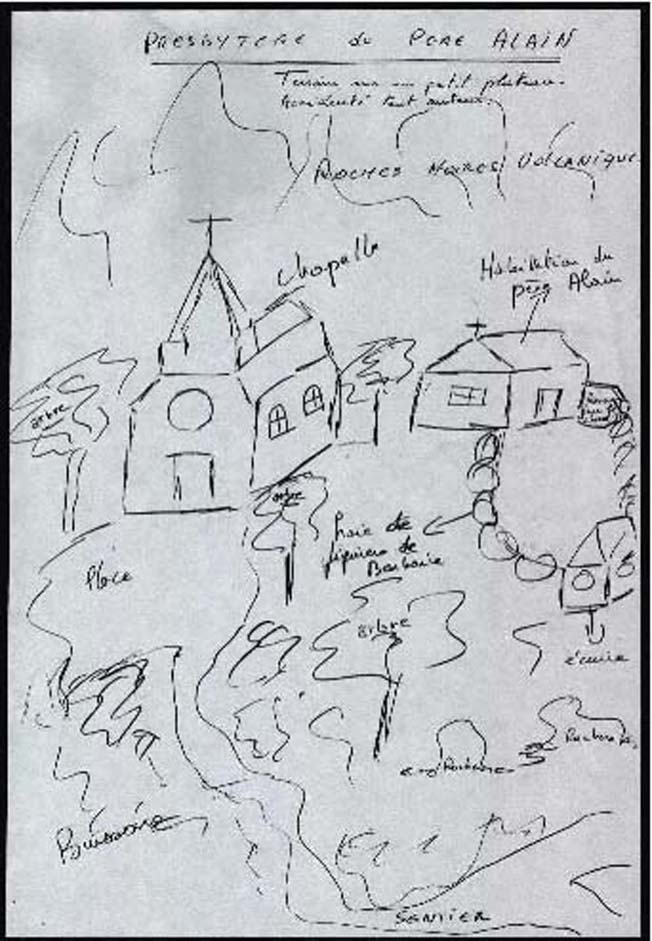 PRESBYTERE du PERE ALAIN
Terrain sur un petit plateau.
Accidenté tout autour.
ROCHES NOIRES VOLCANIQUE
chapelle
Habitation du
père Alain
arbre
arbre
haie de
figuiers de
Barbarie
Place
arbre
écurie
Rochers
Rochers
Buissons
SENTIER